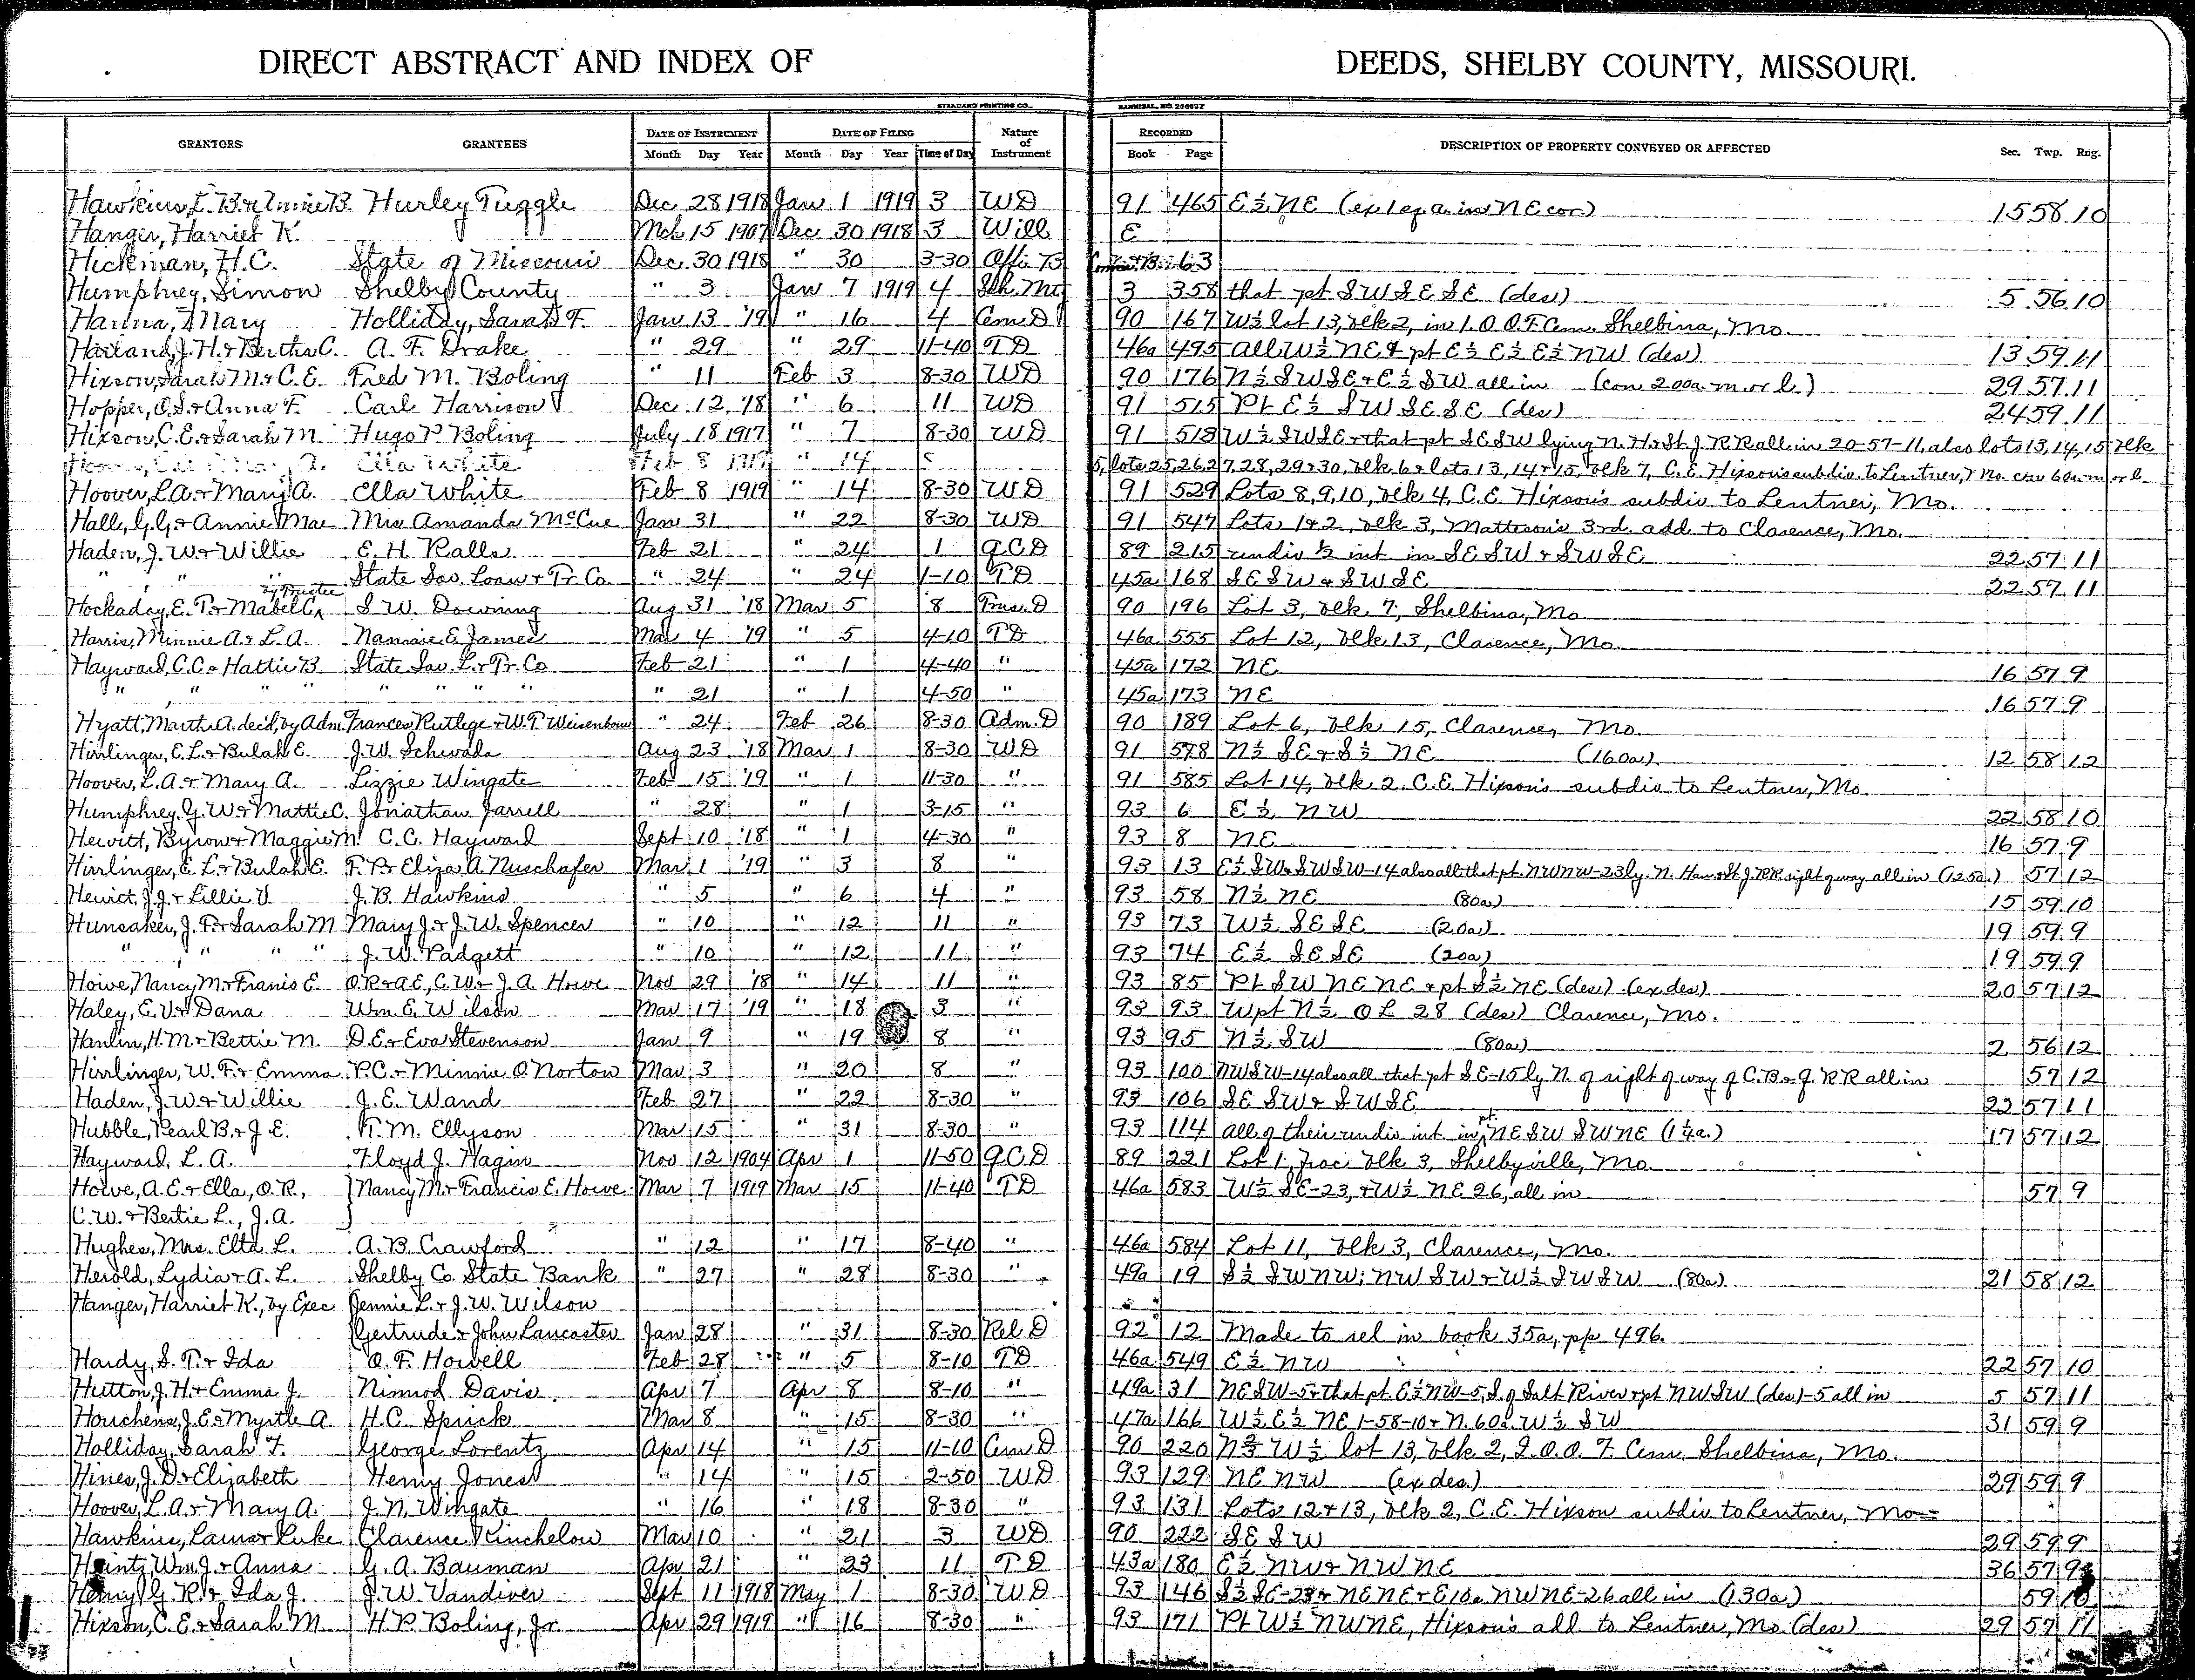 DIRECT ABSTRACT AND INDEX OF DEEDS, SHELBY COUNTY, MISSOURI.
STANDARD PRINTING CO., HANNIBAL, NO. 256627
GRANTORS GRANTEES DATE OF INSTRUMENT DATE OF FILING Nature of Instrument RECORDED DESCRIPTION OF PROPERTY CONVEYED OR AFFECTED Sec. Twp. Rng.
Month Day Year Month Day Year Time of Day Book Page
Hawkins, L. B. & Annie B. Hurley Tuggle Dec 28 1918 Jan 1 1919 3 WD 91 465 E½ NE (ex 1 sq a. in NE cor) 15 58 10
Hanger, Harriet K. Mch 15 1907 Dec 30 1918 3 Will E
Hickman, H.C. State of Missouri Dec 30 1918 " 30 3-30 63
Humphrey, Simon Shelby County " 3 Jan 7 1919 4 Sch. Mtg 3 358 that pt SW SE SE (des) 5 56 10
Hanna, Mary Holliday, Sarah F. Jan 13 '19 " 16 4 Cem. D 90 167 W½ lot 13, blk 2, in I.O.O.F. Cem. Shelbina, Mo.
Harland, J. H. & Bertha C. A. F. Drake " 29 " 29 11-40 TD 46a 495 all W½ NE & pt E½ E½ E½ NW (des) 13 59 11
Hixson, Sarah M. & C. E. Fred M. Boling " 11 Feb 3 8-30 WD 90 176 N½ SWSE & E½ SW all in (con 200a. m. or l.) 29 57 11
Hopper, O. S. & Anna F. Carl Harrison Dec 12 '18 " 6 11 WD 91 515 Pt E½ SW SE SE (des) 24 59 11
Hixson, C. E. & Sarah M. Hugo P. Boling July 18 1917 " 7 8-30 WD 91 518 W½ SWSE & that pt SESW lying N. H. & St. J. RR all in 20-57-11, also lots 13, 14, 15, blk
Ella White Feb 8 1919 " 14 5, lots 25, 26, 27, 28, 29 & 30, blk 6 & lots 13, 14 & 15, blk 7, C. E. Hixson's subdiv. to Lentner, Mo. con 60a. m or l
Hoover, L. A. & Mary A. Ella White Feb 8 1919 " 14 8-30 WD 91 529 Lots 8, 9, 10, blk 4, C. E. Hixson's subdiv to Lentner, Mo.
Hall, G. G. & Annie Mae Mrs Amanda McCue Jan 31 " 22 8-30 WD 91 547 Lots 1 & 2, blk 3, Mattson's 3rd add to Clarence, Mo.
Haden, J. W. & Willie E. H. Ralls Feb 21 " 24 1 QCD 89 215 undiv ½ int in SESW & SWSE 22 57 11
" " " State Sav. Loan & Tr. Co. " 24 " 24 1-10 TD 45a 168 SESW & SWSE 22 57 11
Hockaday, E. T. & Mabel C., by Trustee S. W. Downing Aug 31 '18 Mar 5 8 Trus. D 90 196 Lot 3, blk 7, Shelbina, Mo
Harris, Minnie A. & L. A. Nannie E. James Mar 4 '19 " 5 4-10 TD 46a 555 Lot 12, blk 13, Clarence, Mo.
Hayward, C.C. & Hattie B. State Sav. L. & Tr. Co Feb 21 " 1 4-40 " 45a 172 NE 16 57 9
" " " " " " " " " 21 " 1 4-50 " 45a 173 NE 16 57 9
Hyatt, Martha A. dec'd, by Adm. Frances Rutlege & W. T. Weisenborn " 24 Feb 26 8-30 Adm. D 90 189 Lot 6, blk 15, Clarence, Mo.
Hirrlinger, E. L. & Bulah E. J. W. Schwada Aug 23 '18 Mar 1 8-30 WD 91 578 N½ SE & S½ NE (160a) 12 58 12
Hoover, L. A. & Mary A. Lizzie Wingate Feb 15 '19 " 1 11-30 " 91 585 Lot 14, blk 2, C. E. Hixson's subdiv to Lentner, Mo.
Humphrey, G. W. & Mattie C. Jonathan Jarrell " 28 " 1 3-15 " 93 6 E½ NW 22 58 10
Hewitt, Byron & Maggie M. C. C. Hayward Sept 10 '18 " 1 4-30 " 93 8 NE 16 57 9
Hirrlinger, E. L. & Bulah E. F. P. & Eliza A. Nuschafer Mar 1 '19 " 3 8 " 93 13 E½ SW & SWSW-14 also all that pt. NWNW-23 ly. N. Han & St. J. RR right of way all in (125a.) 57 12
Hewitt, J. J. & Lillie V J. B. Hawkins " 5 " 6 4 " 93 58 N½ NE (80a) 15 59 10
Hunsaker, J. F. & Sarah M Mary J. & J. W. Spencer " 10 " 12 11 " 93 73 W½ SESE (20a) 19 59 9
" " " " J. W. Padgett " 10 " 12 11 " 93 74 E½ SESE (20a) 19 59 9
Howe, Nancy M. & Franis E. O. R. & A. E., C. W. & J. A. Howe Nov 29 '18 " 14 11 " 93 85 Pt SW NE NE & pt S½ NE (des) (ex des) 20 57 12
Haley, E. V. & Dana Wm. E. Wilson Mar 17 '19 " 18 3 " 93 93 W pt N½ OL 28 (des) Clarence, Mo.
Hanlin, H. M. & Bettie M. D. E. & Eva Stevenson Jan 9 " 19 8 " 93 95 N½ SW (80a) 2 56 12
Hirrlinger, W. F. & Emma P.C. & Minnie O. Norton Mar 3 " 20 8 " 93 100 NWSW-14 also all that pt SE-15 ly N. of right of way of C. B. & Q. RR all in 57 12
Haden, J. W. & Willie J. E. Wand Feb 27 " 22 8-30 " 93 106 SE SW & SWSE 22 57 11
Hubble, Pearl B. & J. E. R. M. Ellyson Mar 15 " 31 8-30 " 93 114 all of their undiv int. in pt. NESW SWNE (1¼a.) 17 57 12
Hayward, L. A. Floyd J. Hagin Nov 12 1904 Apr 1 11-50 QCD 89 221 Lot 1, frac blk 3, Shelbyville, Mo.
Howe, A. E. & Ella, O. R., Nancy M. & Francis E. Howe Mar 7 1919 Mar 15 11-40 TD 46a 583 W½ SE-23, & W½ NE 26, all in 57 9
C. W. & Bertie L., J. A.
Hughes, Mrs. Elta L. A. B. Crawford " 12 " 17 8-40 " 46a 584 Lot 11, blk 3, Clarence, Mo.
Herold, Lydia & A. L. Shelby Co. State Bank " 27 " 28 8-30 " 49a 19 S½ SWNW; NWSW & W½ SWSW (80a) 21 58 12
Hanger, Harriet K., by Exec Jennie L. & J. W. Wilson
Gertrude & John Lancaster Jan 28 " 31 8-30 Rel D 92 12 Made to rel in book 35a, pp 496.
Hardy, S. T. & Ida O. F. Howell Feb 28 " 5 8-10 TD 46a 549 E½ NW 22 57 10
Hutton, J. H. & Emma J. Nimrod Davis Apr 7 Apr 8 8-10 " 49a 31 NESW-5 & that pt E½ NW-5, S. of Salt River & pt NWSW (des)-5 all in 5 57 11
Houchens, J. E. & Myrtle A H. C. Spuck Mar 8 " 15 8-30 " 47a 166 W½ E½ NE 1-58-10 & N. 60a. W½ SW 31 59 9
Holliday, Sarah F. George Lorentz Apr 14 " 15 11-10 Cem D 90 220 N⅔ W½ lot 13, blk 2, I.O.O.F. Cem. Shelbina, Mo.
Hines, J. D. & Elizabeth Henry Jones " 14 " 15 2-50 WD 93 129 NE NW (ex des) 29 59 9
Hoover, L. A. & Mary A. J. N. Wingate " 16 " 18 8-30 " 93 131 Lots 12 & 13, blk 2, C. E. Hixson subdiv to Lentner, Mo
Hawkins, Laura & Luke Clarence Kinchelow Mar 10 " 21 3 WD 90 222 SE SW 29 59 9
Heintz, Wm. J. & Anna G. A. Bauman Apr 21 " 23 11 TD 43a 180 E½ NW & NWNE 36 57 9
Henry, G. R. & Ida J. J. W. Vandiver Sept 11 1918 May 1 8-30 WD 93 146 S½ SE-23 & NENE & E10a NWNE-26 all in (130a) 59 10
Hixson, C. E. & Sarah M H. P. Boling, Jr. Apr 29 1919 " 16 8-30 " 93 171 Pt W½ NWNE, Hixson's add to Lentner, Mo. (des) 29 57 11